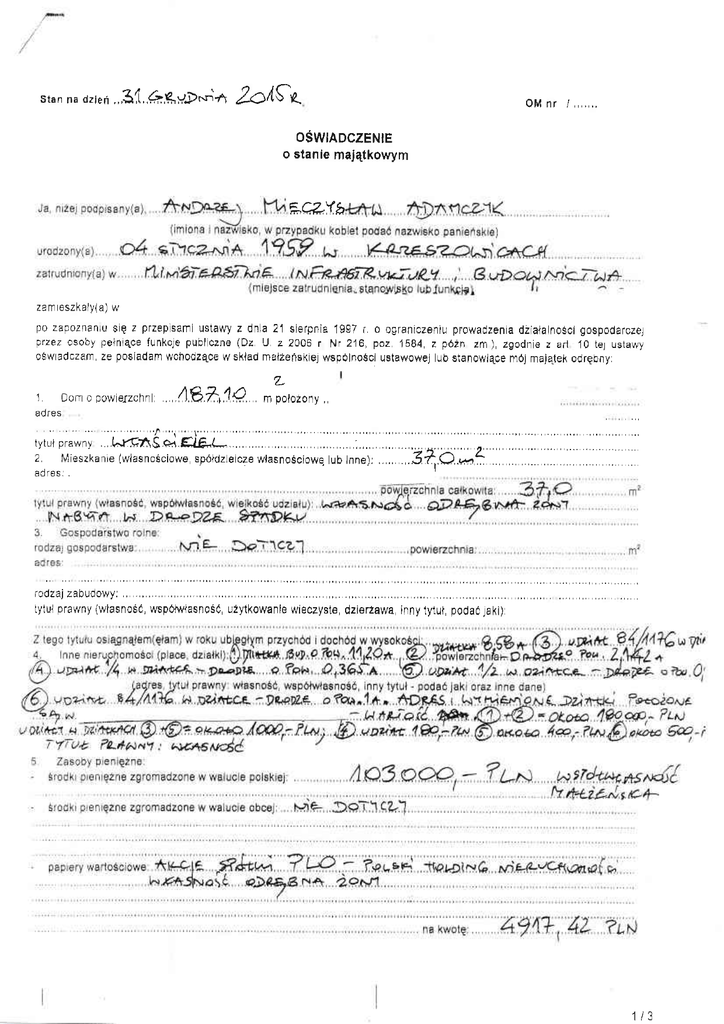 Stan na dzień ..31.GRUDNIA 2015R.
OM nr /.......
OŚWIADCZENIE
o stanie majątkowym
Ja, niżej podpisany(a), ANDRZEJ MIECZYSŁAW ADAMCZYK
(imiona i nazwisko, w przypadku kobiet podać nazwisko panieńskie)
urodzony(a) 04 STYCZNIA 1959 W KRZESZOWICACH
zatrudniony(a) w MINISTERSTWIE INFRASTRUKTURY i BUDOWNICTWA
(miejsce zatrudnienia, stanowisko lub funkcja)
zamieszkały(a) w
po zapoznaniu się z przepisami ustawy z dnia 21 sierpnia 1997 r. o ograniczeniu prowadzenia działalności gospodarczej
przez osoby pełniące funkcje publiczne (Dz. U. z 2006 r Nr 216, poz. 1584, z późn. zm.), zgodnie z art. 10 tej ustawy
oświadczam, że posiadam wchodzące w skład małżeńskiej wspólności ustawowej lub stanowiące mój majątek odrębny:
1. Dom o powierzchni: 187,10 m2 położony ..
adres: ....
tytuł prawny: WŁAŚCICIEL
2. Mieszkanie (własnościowe, spółdzielcze własnościową lub inne): 37,0 m2
adres: .
powierzchnia całkowita: 37,0 m2
tytuł prawny (własność, współwłasność, wielkość udziału): WŁASNOŚĆ ODRĘBNA ŻONY
NABYTA W DRODZE SPADKU
3. Gospodarstwo rolne:
rodzaj gospodarstwa: NIE DOTYCZY powierzchnia: m2
adres:
rodzaj zabudowy:
tytuł prawny (własność, współwłasność, użytkowanie wieczyste, dzierżawa, inny tytuł, podać jaki):
Z tego tytułu osiągnąłem(ęłam) w roku ubiegłym przychód i dochód w wysokości: DZIAŁKA 8,58A ③ UDZIAŁ 84/1176 W DZIA
4. Inne nieruchomości (place, działki): ① DZIAŁKA BUD. O POW. 11,20A ② powierzchnia: DRODZE O POW. 2,142A
④ UDZIAŁ 1/4 W DZIAŁCE - DRODZE O POW. 0,365A ⑤ UDZIAŁ 1/2 W DZIAŁCE - DRODZE O POW. 0,
(adres, tytuł prawny: własność, współwłasność, inny tytuł - podać jaki oraz inne dane)
⑥ UDZIAŁ 84/1176 W DZIAŁCE - DRODZE O POW. 1A. ADRES: WYMIENIONE DZIAŁKI POŁOŻONE
SĄ W - WARTOŚĆ ①+② = OKOŁO 180000,- PLN
UDZIAŁY W DZIAŁKACH ③+⑤ = OKOŁO 1000,- PLN; ④ UDZIAŁ 180,- PLN ⑤ OKOŁO 400,- PLN ⑥ OKOŁO 500,-
TYTUŁ PRAWNY: WŁASNOŚĆ
5. Zasoby pieniężne:
- środki pieniężne zgromadzone w walucie polskiej: 103000,- PLN WSPÓŁWŁASNOŚĆ
MAŁŻEŃSKA
- środki pieniężne zgromadzone w walucie obcej: NIE DOTYCZY
- papiery wartościowe: AKCJE SPÓŁKI PLO - POLSKI HOLDING NIERUCHOMOŚCI
WŁASNOŚĆ ODRĘBNA ŻONY
na kwotę: 4917,42 PLN
1 / 3